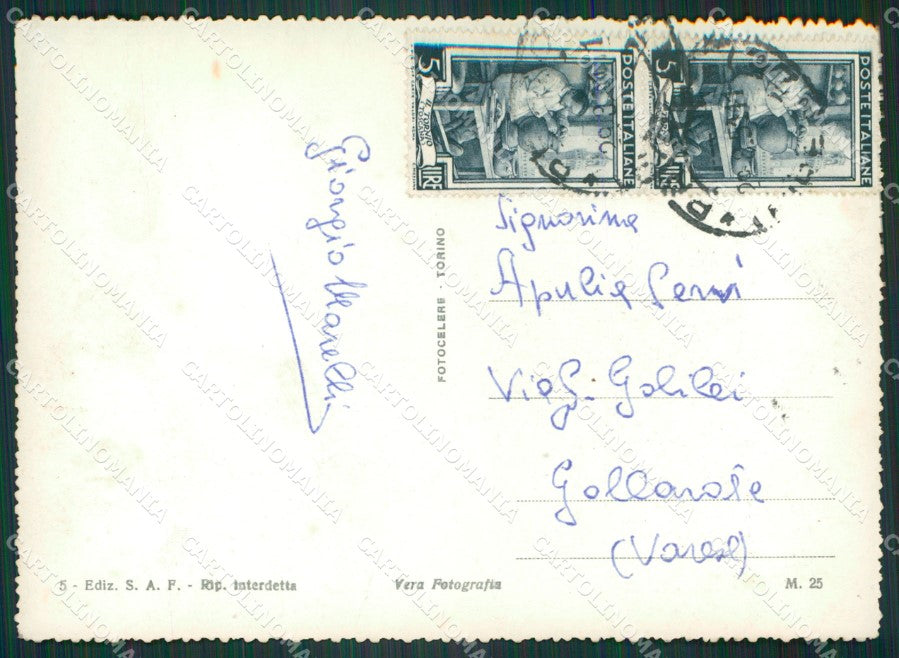 5
POSTE ITALIANE
IL TORNIO
LIRE
5
POSTE ITALIANE
Giorgio Marelli
FOTOCELERE - TORINO
Signorina
Apulia
Via G. Galilei
Gallarate
(Varese)
5 - Ediz. S. A. F. - Rip. Interdetta
Vera Fotografia
M. 25
CARTOLINOMANIA